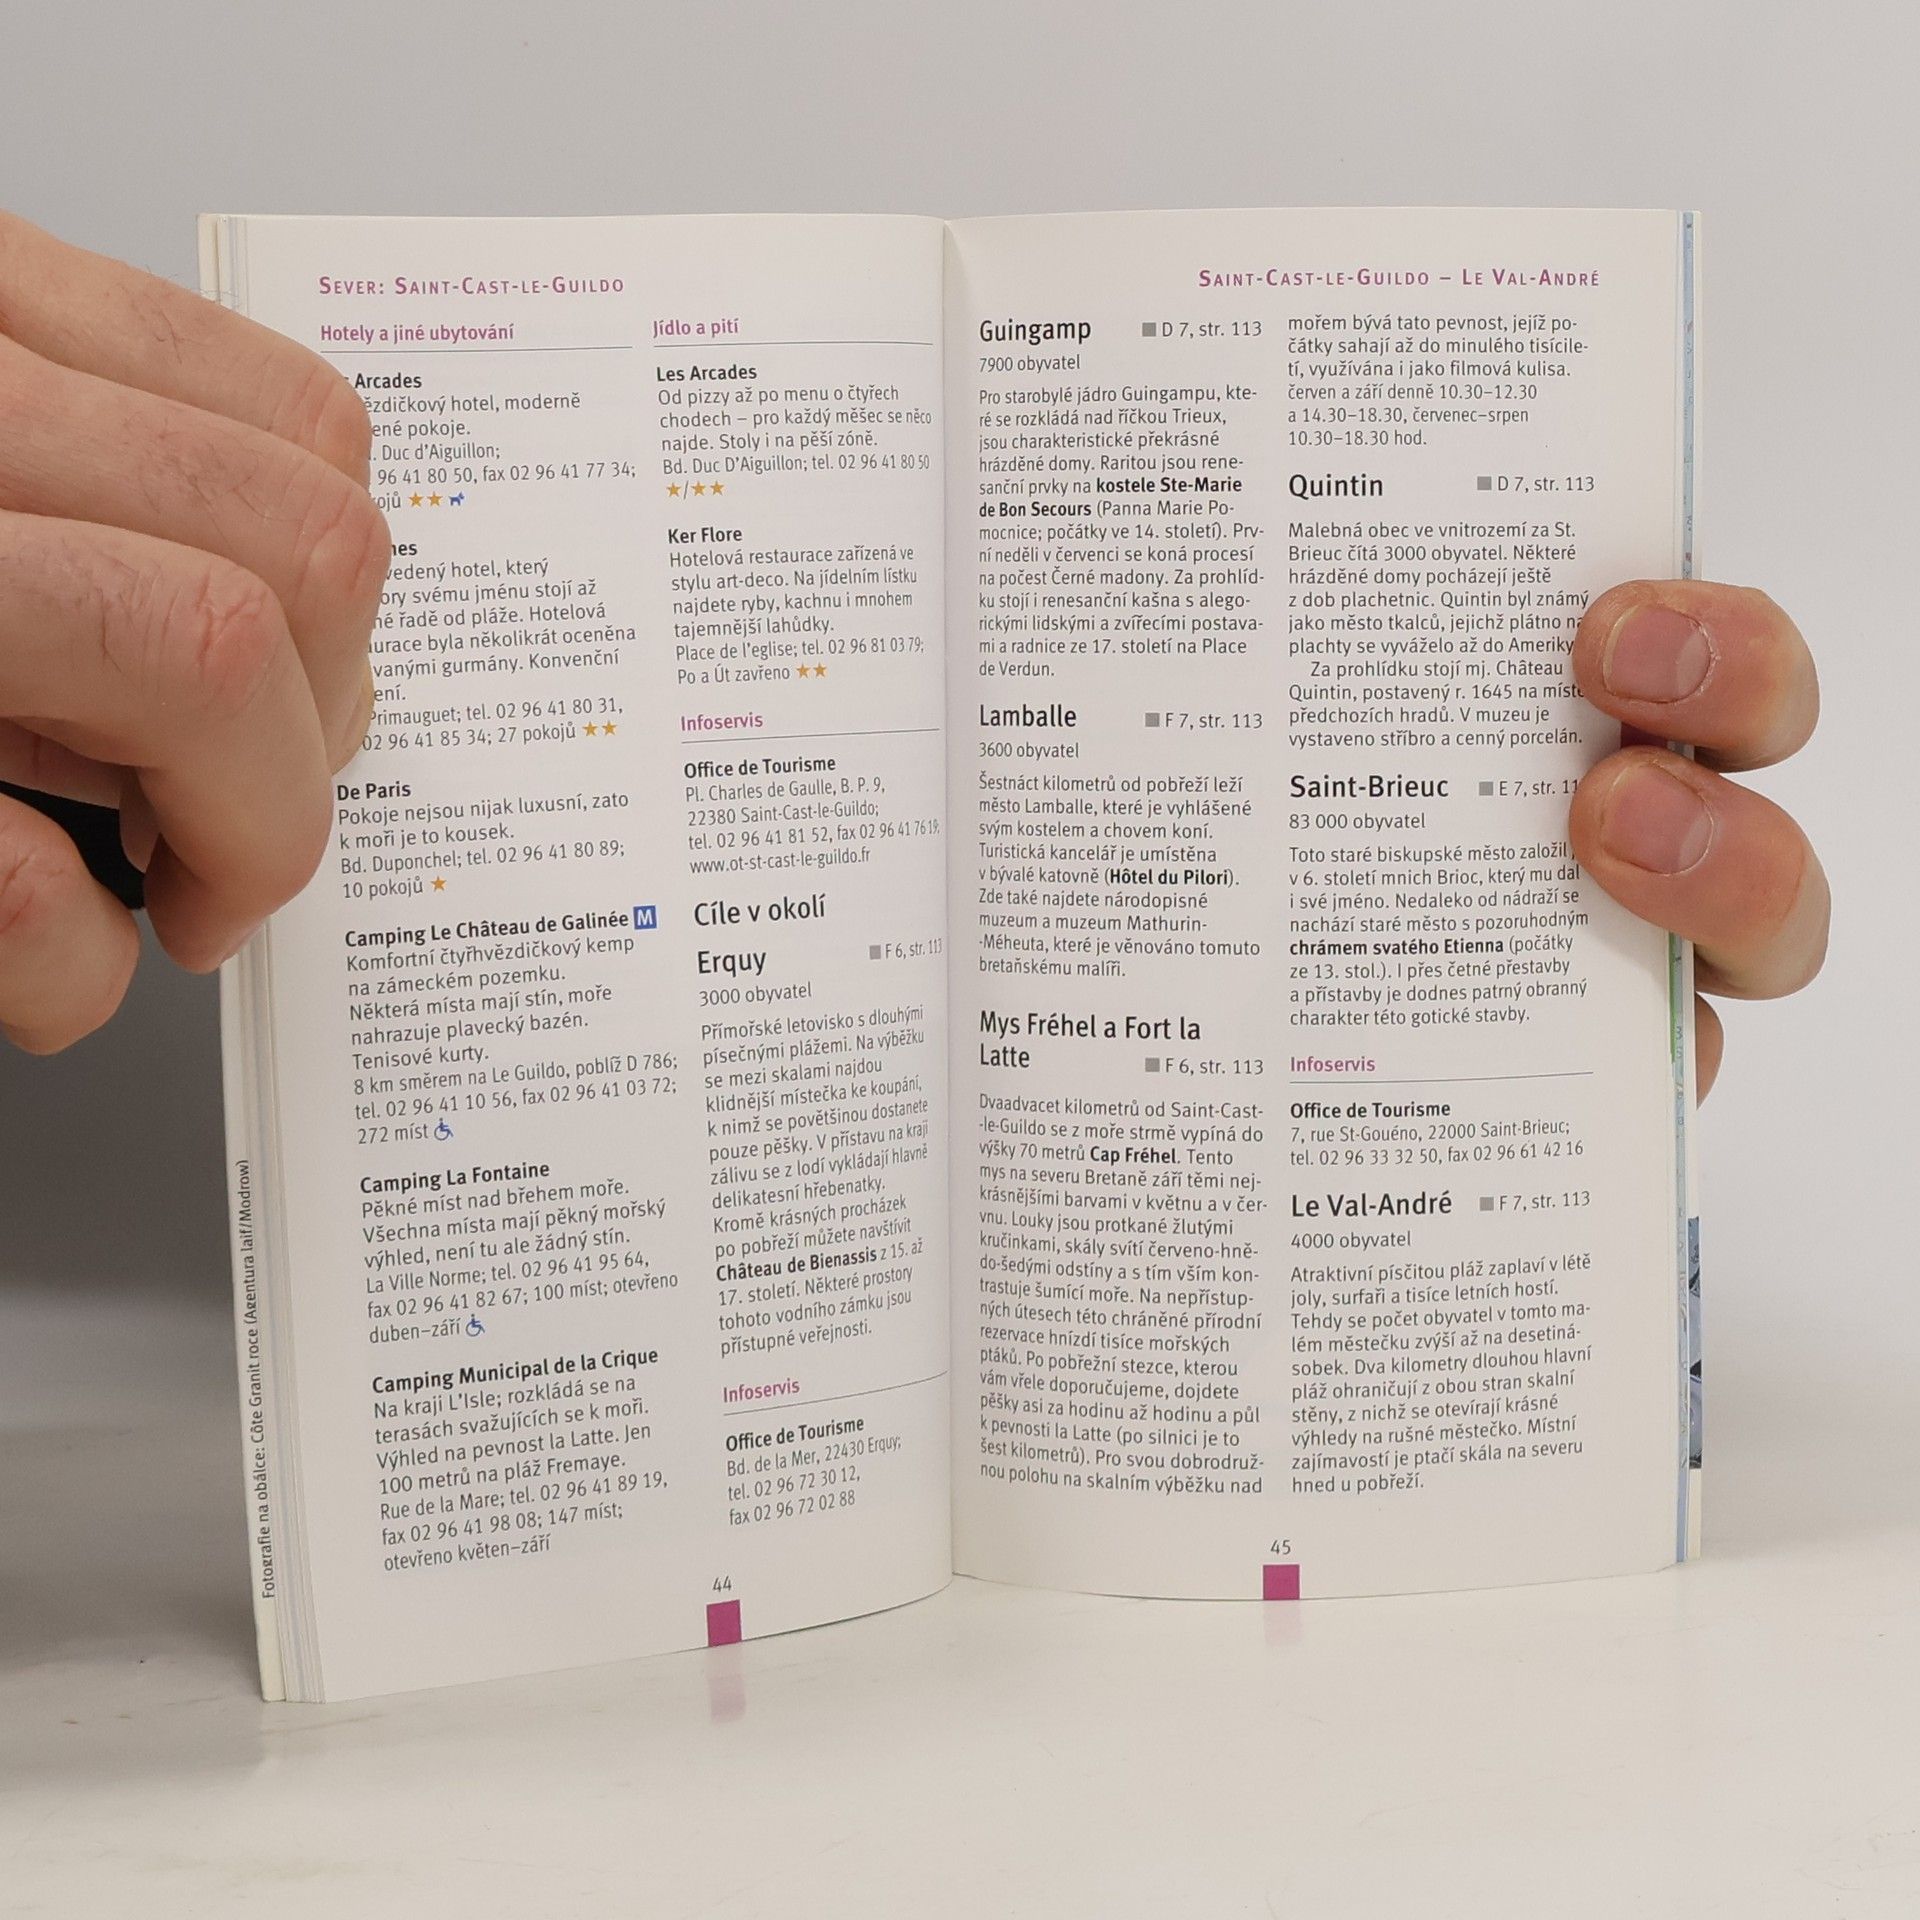 SEVER: SAINT-CAST-LE-GUILDO
Hotely a jiné ubytování
Arcades
hotel, moderně
pokoje.
Duc d'Aiguillon;
96 41 80 50, fax 02 96 41 77 34;
★★
hotel, který
svému jménu stojí až
řadě od pláže. Hotelová
byla několikrát oceněna
gurmány. Konvenční
Primauguet; tel. 02 96 41 80 31,
02 96 41 85 34; 27 pokojů ★★
De Paris
Pokoje nejsou nijak luxusní, zato
k moři je to kousek.
Bd. Duponchel; tel. 02 96 41 80 89;
10 pokojů ★
Camping Le Château de Galinée M
Komfortní čtyřhvězdičkový kemp
na zámeckém pozemku.
Některá místa mají stín, moře
nahrazuje plavecký bazén.
Tenisové kurty.
8 km směrem na Le Guildo, poblíž D 786;
tel. 02 96 41 10 56, fax 02 96 41 03 72;
272 míst
Camping La Fontaine
Pěkné míst nad břehem moře.
Všechna místa mají pěkný mořský
výhled, není tu ale žádný stín.
La Ville Norme; tel. 02 96 41 95 64,
fax 02 96 41 82 67; 100 míst; otevřeno
duben–září
Camping Municipal de la Crique
Na kraji L'Isle; rozkládá se na
terasách svažujících se k moři.
Výhled na pevnost la Latte. Jen
100 metrů na pláž Fremaye.
Rue de la Mare; tel. 02 96 41 89 19,
fax 02 96 41 98 08; 147 míst;
otevřeno květen–září
Jídlo a pití
Les Arcades
Od pizzy až po menu o čtyřech
chodech – pro každý měšec se něco
najde. Stoly i na pěší zóně.
Bd. Duc D'Aiguillon; tel. 02 96 41 80 50
★/★★
Ker Flore
Hotelová restaurace zařízená ve
stylu art-deco. Na jídelním lístku
najdete ryby, kachnu i mnohem
tajemnější lahůdky.
Place de l'eglise; tel. 02 96 81 03 79;
Po a Út zavřeno ★★
Infoservis
Office de Tourisme
Pl. Charles de Gaulle, B. P. 9,
22380 Saint-Cast-le-Guildo;
tel. 02 96 41 81 52, fax 02 96 41 76 19;
www.ot-st-cast-le-guildo.fr
Cíle v okolí
Erquy ■ F 6, str. 113
3000 obyvatel
Přímořské letovisko s dlouhými
písečnými plážemi. Na výběžku
se mezi skalami najdou
klidnější místečka ke koupání,
k nimž se povětšinou dostanete
pouze pěšky. V přístavu na kraji
zálivu se z lodí vykládají hlavně
delikatesní hřebenatky.
Kromě krásných procházek
po pobřeží můžete navštívit
Château de Bienassis z 15. až
17. století. Některé prostory
tohoto vodního zámku jsou
přístupné veřejnosti.
Infoservis
Office de Tourisme
Bd. de la Mer, 22430 Erquy;
tel. 02 96 72 30 12,
fax 02 96 72 02 88
44
Fotografie na obálce: Côte Granit roce (Agentura laif/Modrow)
SAINT-CAST-LE-GUILDO – LE VAL-ANDRÉ
Guingamp ■ D 7, str. 113
7900 obyvatel
Pro starobylé jádro Guingampu, kte-
ré se rozkládá nad říčkou Trieux,
jsou charakteristické překrásné
hrázděné domy. Raritou jsou rene-
sanční prvky na kostele Ste-Marie
de Bon Secours (Panna Marie Po-
mocnice; počátky ve 14. století). Prv-
ní neděli v červenci se koná procesí
na počest Černé madony. Za prohlíd-
ku stojí i renesanční kašna s alego-
rickými lidskými a zvířecími postava-
mi a radnice ze 17. století na Place
de Verdun.
Lamballe ■ F 7, str. 113
3600 obyvatel
Šestnáct kilometrů od pobřeží leží
město Lamballe, které je vyhlášené
svým kostelem a chovem koní.
Turistická kancelář je umístěna
v bývalé katovně (Hôtel du Pilori).
Zde také najdete národopisné
muzeum a muzeum Mathurin-
-Méheuta, které je věnováno tomuto
bretaňskému malíři.
Mys Fréhel a Fort la
Latte ■ F 6, str. 113
Dvaadvacet kilometrů od Saint-Cast-
-le-Guildo se z moře strmě vypíná do
výšky 70 metrů Cap Fréhel. Tento
mys na severu Bretaně září těmi nej-
krásnějšími barvami v květnu a v čer-
vnu. Louky jsou protkané žlutými
kručinkami, skály svítí červeno-hně-
do-šedými odstíny a s tím vším kon-
trastuje šumící moře. Na nepřístup-
ných útesech této chráněné přírodní
rezervace hnízdí tisíce mořských
ptáků. Po pobřežní stezce, kterou
vám vřele doporučujeme, dojdete
pěšky asi za hodinu až hodinu a půl
k pevnosti la Latte (po silnici je to
šest kilometrů). Pro svou dobrodruž-
nou polohu na skalním výběžku nad
mořem bývá tato pevnost, jejíž po-
čátky sahají až do minulého tisícile-
tí, využívána i jako filmová kulisa.
červen a září denně 10.30–12.30
a 14.30–18.30, červenec–srpen
10.30–18.30 hod.
Quintin ■ D 7, str. 113
Malebná obec ve vnitrozemí za St.
Brieuc čítá 3000 obyvatel. Některé
hrázděné domy pocházejí ještě
z dob plachetnic. Quintin byl známý
jako město tkalců, jejichž plátno na
plachty se vyváželo až do Ameriky
Za prohlídku stojí mj. Château
Quintin, postavený r. 1645 na místě
předchozích hradů. V muzeu je
vystaveno stříbro a cenný porcelán.
Saint-Brieuc ■ E 7, str.
83 000 obyvatel
Toto staré biskupské město založil
v 6. století mnich Brioc, který mu dal
i své jméno. Nedaleko od nádraží se
nachází staré město s pozoruhodným
chrámem svatého Etienna (počátky
ze 13. stol.). I přes četné přestavby
a přístavby je dodnes patrný obranný
charakter této gotické stavby.
Infoservis
Office de Tourisme
7, rue St-Gouéno, 22000 Saint-Brieuc;
tel. 02 96 33 32 50, fax 02 96 61 42 16
Le Val-André ■ F 7, str. 113
4000 obyvatel
Atraktivní písčitou pláž zaplaví v létě
joly, surfaři a tisíce letních hostí.
Tehdy se počet obyvatel v tomto ma-
lém městečku zvýší až na desetiná-
sobek. Dva kilometry dlouhou hlavní
pláž ohraničují z obou stran skalní
stěny, z nichž se otevírají krásné
výhledy na rušné městečko. Místní
zajímavostí je ptačí skála na severu
hned u pobřeží.
45